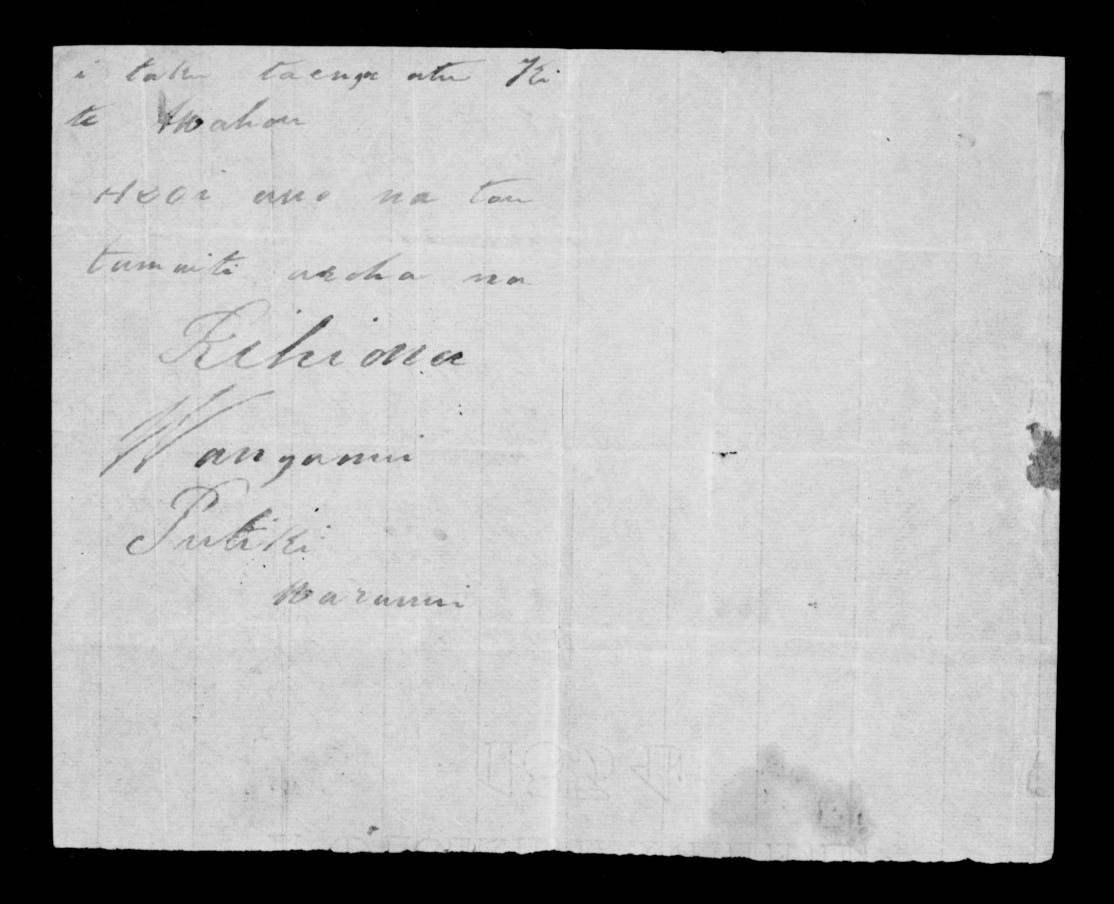 i taku taenga atu Ki
te Awahou
Heoi ano na tou
tamaiti aroha na
Rihiona
Wanganui
Putiki
waranui